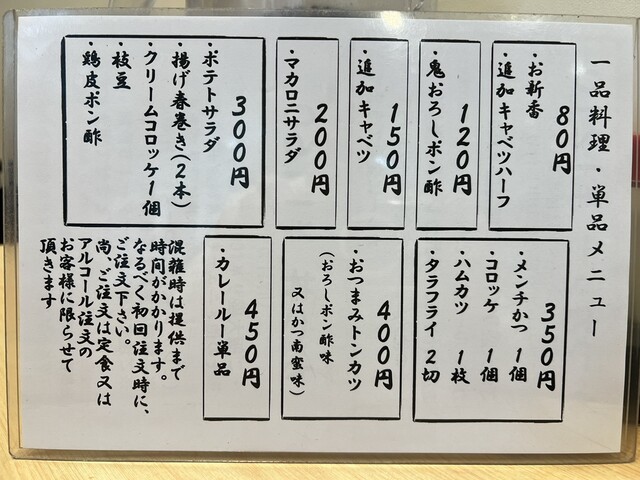 一品料理・単品メニュー
80円
・お新香
・追加キャベツハーフ
120円
・鬼おろしポン酢
150円
・追加キャベツ
200円
・マカロニサラダ
300円
・ポテトサラダ
・揚げ春巻き(2本)
・クリームコロッケ1個
・枝豆
・鶏皮ポン酢
350円
・メンチかつ 1個
・コロッケ 1個
・ハムカツ 1枚
・タラフライ 2切
400円
・おつまみトンカツ
(おろしポン酢味
又はかつ南蜜味)
450円
・カレールー単品
混雑時は提供まで
時間がかかります。
なるべく初回注文時に、
ご注文下さい。
尚、ご注文は定食又は
アルコール注文の
お客様に限らせて
頂きます